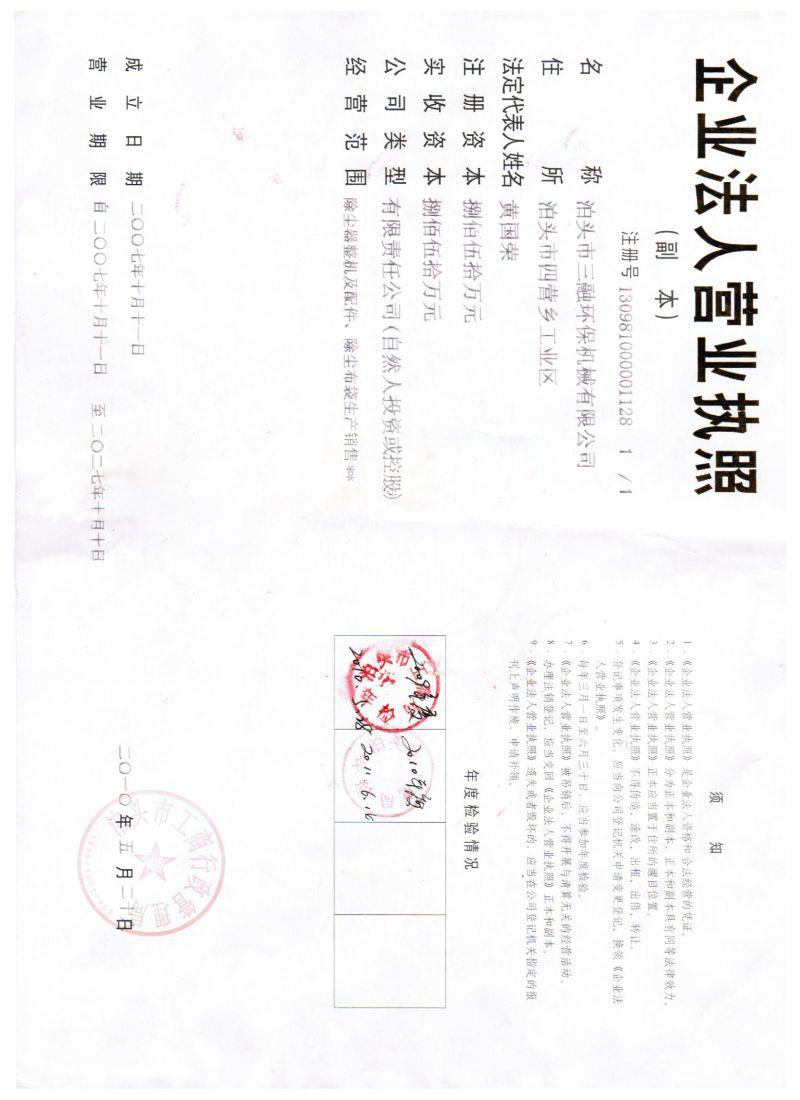 企业法人营业执照
(副 本)
注册号 130981000001128 1 / 1
名 称 泊头市三融环保机械有限公司
住 所 泊头市四营乡工业区
法定代表人姓名 黄国荣
注 册 资 本 捌佰伍拾万元
实 收 资 本 捌佰伍拾万元
公 司 类 型 有限责任公司(自然人投资或控股)
经 营 范 围 除尘器整机及配件、除尘布袋生产销售**
成 立 日 期 二〇〇七年十月十一日
营 业 期 限 自 二〇〇七年十月十一日 至 二〇二七年十月十日
须 知
1.《企业法人营业执照》是企业法人资格和合法经营的凭证。
2.《企业法人营业执照》分为正本和副本，正本和副本具有同等法律效力。
3.《企业法人营业执照》正本应当置于住所的醒目位置。
4.《企业法人营业执照》不得伪造、涂改、出租、出借、转让。
5. 登记事项发生变化，应当向公司登记机关申请变更登记，换领《企业法
人营业执照》。
6. 每年三月一日至六月三十日，应当参加年度检验。
7.《企业法人营业执照》被吊销后，不得开展与清算无关的经营活动。
8. 办理注销登记，应当交回《企业法人营业执照》正本和副本。
9.《企业法人营业执照》遗失或者毁坏的，应当在公司登记机关指定的报
刊上声明作废，申请补领。
年度检验情况
2009年度
2010.5.28
2010年度
2011.6.16
泊头市工商行政管理局
二〇一〇 年 五 月 二十 日